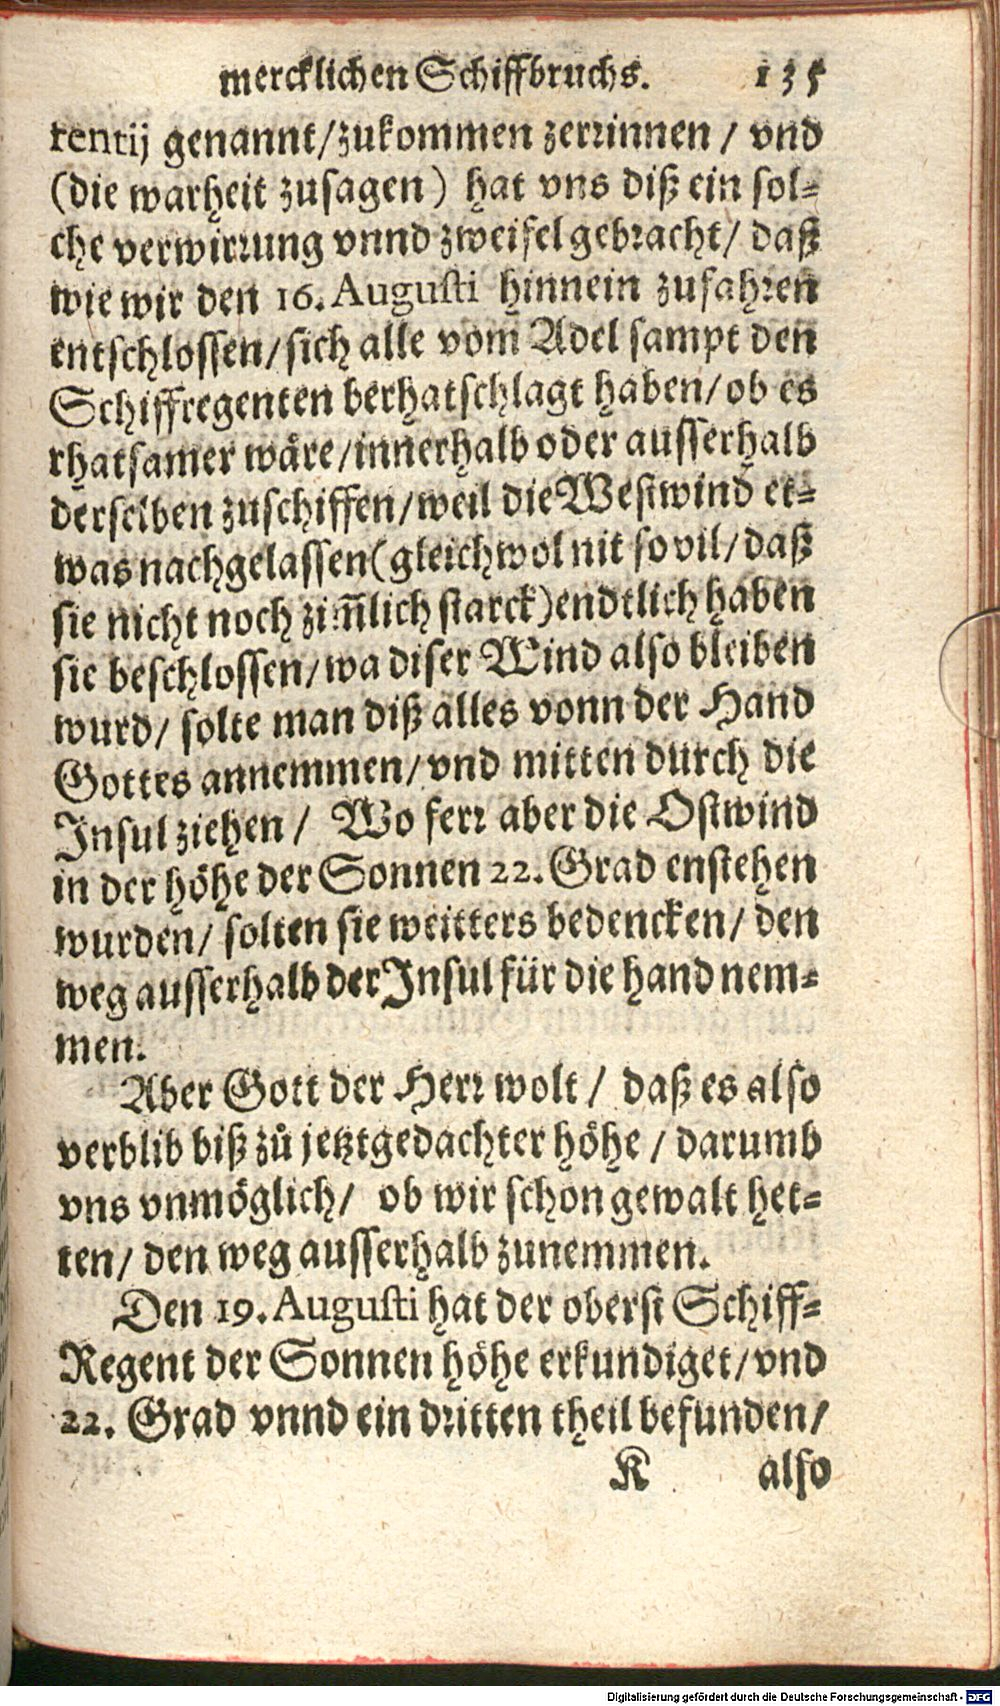 mercklichen Schiffbruchs. 135
rentij genannt/zukommen zerrinnen / vnd
(die warheit zusagen) hat vns diß ein sol⸗
che verwirrung vnnd zweifel gebracht/ daß
wie wir den 16. Augusti hinnein zufahren
entschlossen/sich alle vom̃ Adel sampt den
Schiffregenten berhatschlagt haben/ob es
rhatsamer wäre/innerhalb oder ausserhalb
derselben zuschiffen/weil die Westwind et⸗
was nachgelassen(gleichwol nit so vil/daß
sie nicht noch zim̃lich starck)endtlich haben
sie beschlossen/wa diser Wind also bleiben
wurd/ solte man diß alles vonn der Hand
Gottes annemmen/vnd mitten durch die
Insul ziehen / Wo ferr aber die Ostwind
in der höhe der Sonnen 22. Grad enstehen
wurden/ solten sie weitters bedencken/ den
weg ausserhalb der Insul für die hand nem⸗
men.
Aber Gott der Herr wolt / daß es also
verblib biß zů jetztgedachter höhe / darumb
vns vnmöglich/ ob wir schon gewalt het⸗
ten/ den weg ausserhalb zunemmen.
Den 19. Augusti hat der oberst Schiff⸗
Regent der Sonnen höhe erkundiget/vnd
22. Grad vnnd ein dritten theil befunden/
K also
Digitalisierung gefördert durch die Deutsche Forschungsgemeinschaft - DFG